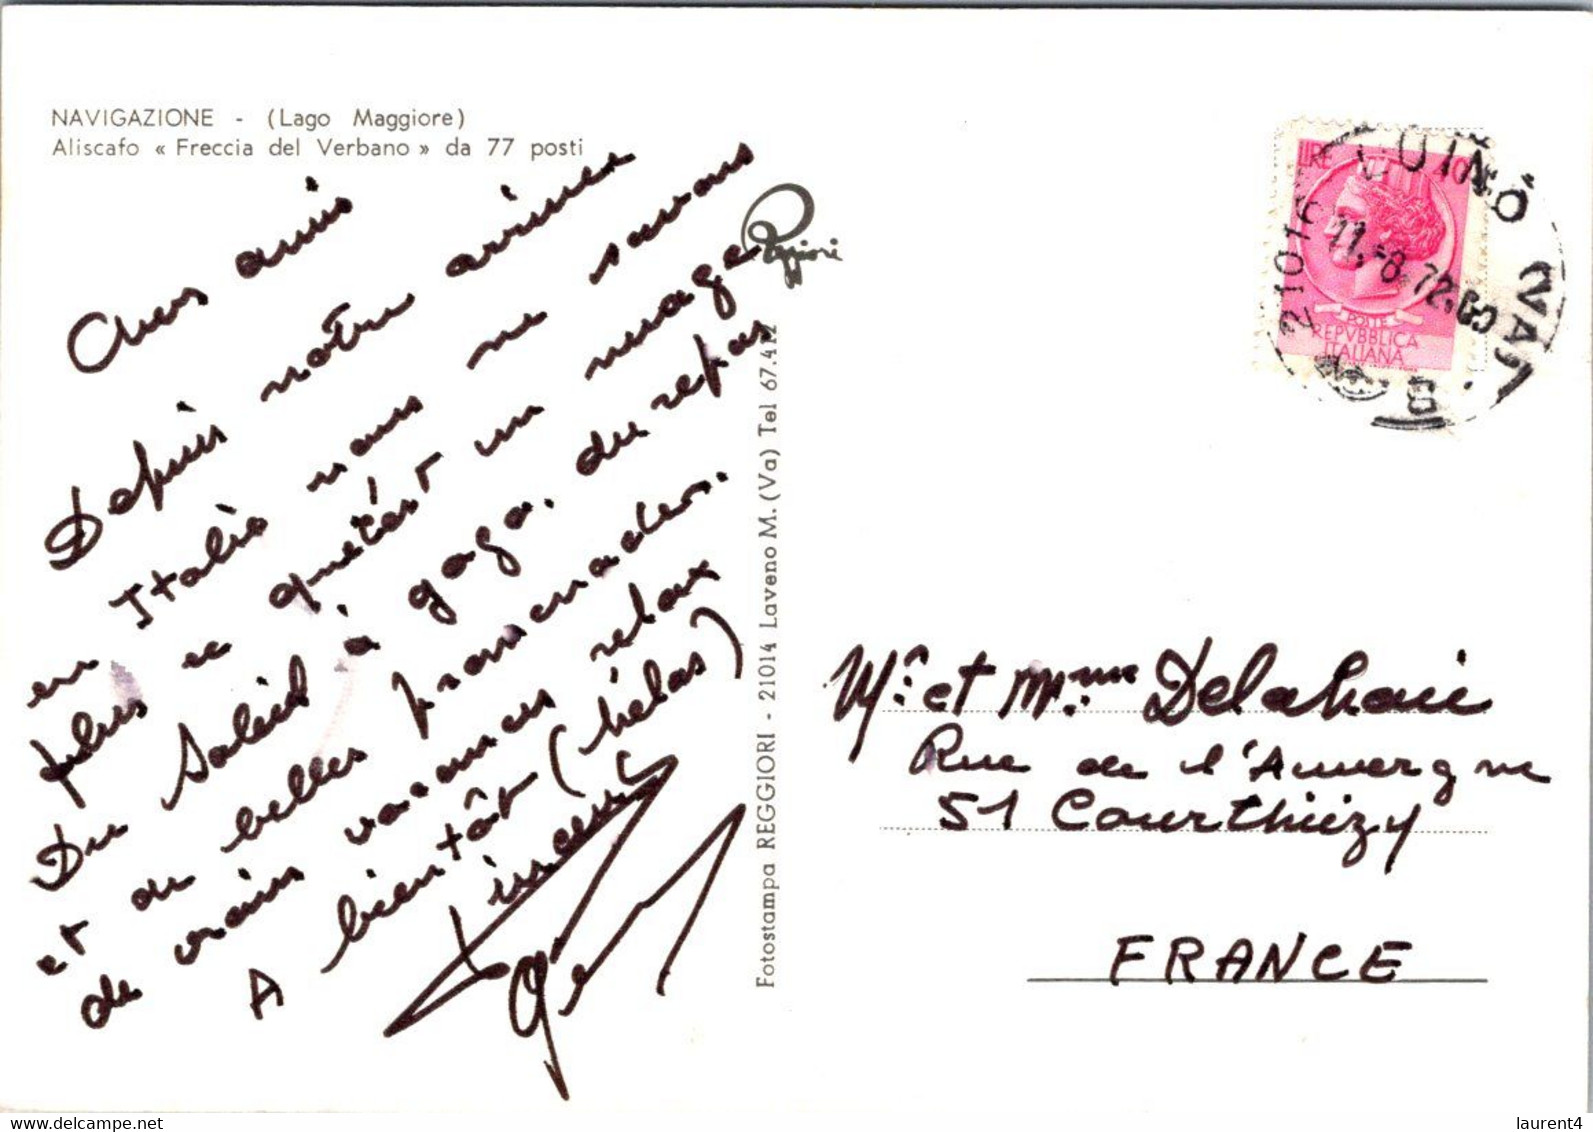 NAVIGAZIONE - (Lago Maggiore)
Aliscafo « Freccia del Verbano » da 77 posti
Chers amis
Depuis notre arrivée
en Italie nous ne savons
plus ce qu'est un nuage
Du soleil à gogo. du repos
et de belles promenades.
de vraies vacances relax
A bientôt (hélas)
Reggiori
Fotostampa REGGIORI - 21014 Laveno M. (Va) Tel 67.412
LIRE
POSTE
REPVBBLICA
ITALIANA
21016 LUINO (VA)
11.-8.72
B
Mr. et Mme Delahaie
Rue de l'Auvergne
51 Courthiézy
FRANCE
laurent4
www.delcampe.net